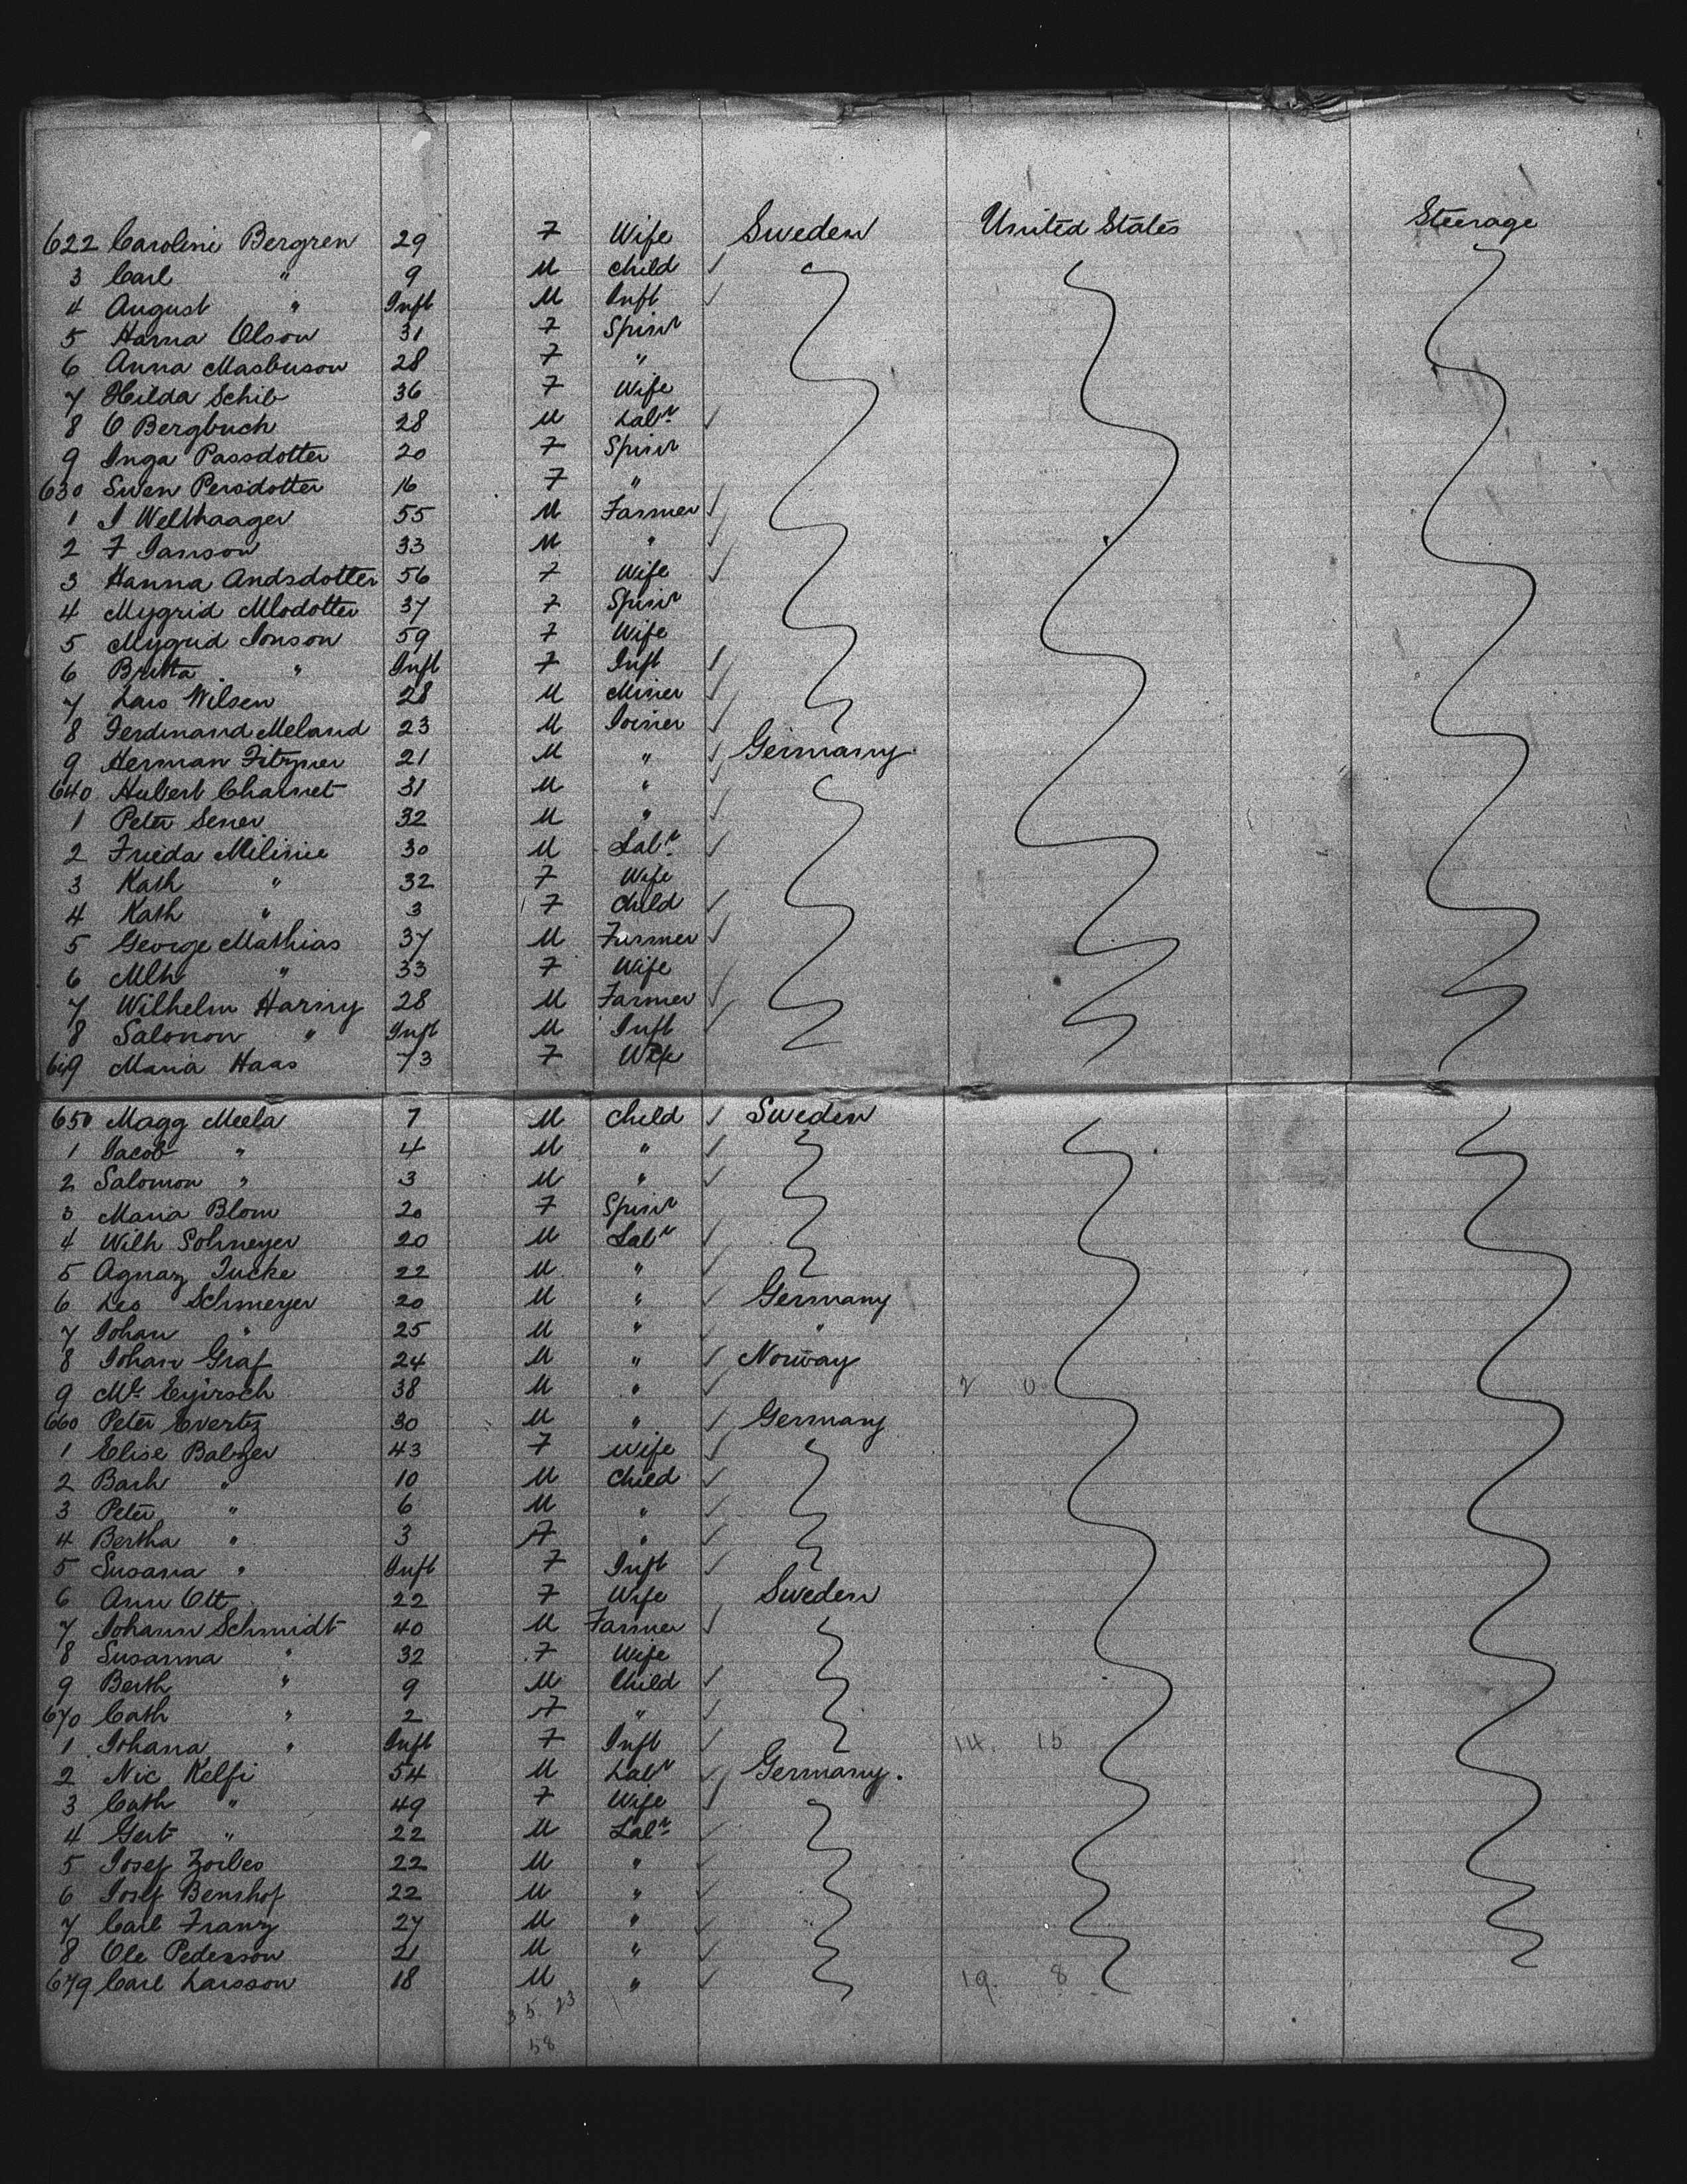 622 Carolini Bergren 29 F Wife Sweden United States Steerage
3 Carl " 9 M Child ✓
4 August " Inft M Inft ✓
5 Hanna Olson 31 F Spinr
6 Anna Masbuson 28 F "
7 Hilda Schib 36 F Wife
8 O Bergbuch 28 M Labr ✓
9 Inga Passdotter 20 F Spinr
630 Swen Persdotter 16 F "
1 I Welthaager 55 M Farmer ✓
2 F Janson 33 M " ✓
3 Hanna Andsdotter 56 F Wife ✓
4 Mygrid Mlodotter 37 F Spinr
5 Mygrid Jonson 59 F Wife
6 Britta " Inft F Inft ✓
7 Lars Wilsen 28 M Miner ✓
8 Ferdinand Meland 23 M Joiner ✓
9 Herman Fitzner 21 M " ✓ Germany
640 Hubert Charnet 31 M " ✓
1 Peter Sener 32 M " ✓
2 Frieda Milinie 30 M Labr ✓
3 Kath " 32 F Wife
4 Kath " 3 F Child ✓
5 George Mathias 37 M Farmer ✓
6 Mlh " 33 F Wife
7 Wilhelm Harny 28 M Farmer ✓
8 Salonon " Inft M Inft ✓
649 Maria Haas 73 F Wife
650 Magg Meela 7 M Child ✓ Sweden
1 Jacob " 4 M " ✓
2 Salomon " 3 M " ✓
3 Maria Blom 20 F Spinr
4 Wilh Sohmeyer 20 M Labr ✓
5 Agnaz Jucke 22 M " ✓
6 Leo Schmeyer 20 M " ✓ Germany
7 Johan " 25 M " ✓ "
8 Johan Graf 24 M " ✓ Norway
9 Mr Eyirsch 38 M " ✓ 2 0
660 Peter Evertz 30 M " ✓ Germany
1 Elise Balzer 43 F Wife ✓
2 Barh " 10 M Child ✓
3 Peter " 6 M " ✓
4 Bertha " 3 F " ✓
5 Susana " Inft F Inft ✓
6 Ann Ott 22 F Wife Sweden
7 Johann Schmidt 40 M Farmer ✓
8 Susanna " 32 F Wife
9 Berth " 9 M Child ✓
670 Cath " 2 F " ✓
1 Johana " Inft F Inft ✓ 14. 15
2 Nic Kelfi 54 M Labr ✓ Germany.
3 Cath " 49 F Wife ✓
4 Gert " 22 M Labr ✓
5 Josef Zorbes 22 M " ✓
6 Josef Benshof 22 M " ✓
7 Carl Franz 27 M " ✓
8 Ole Pederson 21 M " ✓
679 Carl Larsson 18 M " ✓ 19. 8
35. 23
58